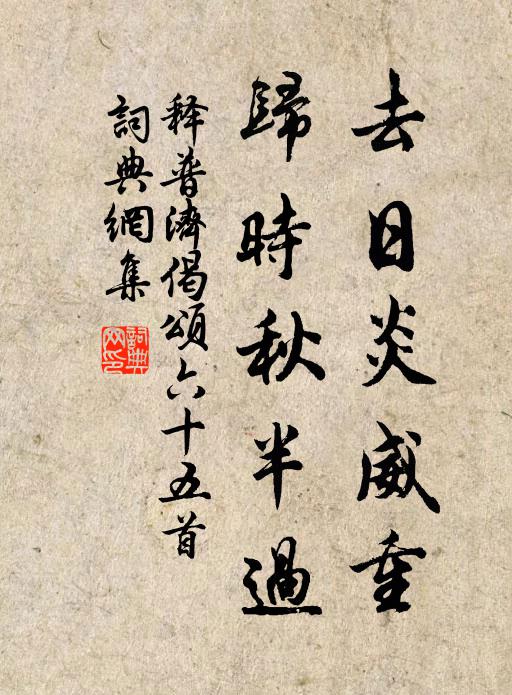 去日炎威重
歸時秋半過
释普濟偈頌六十五首
詞典網集
詞典网印